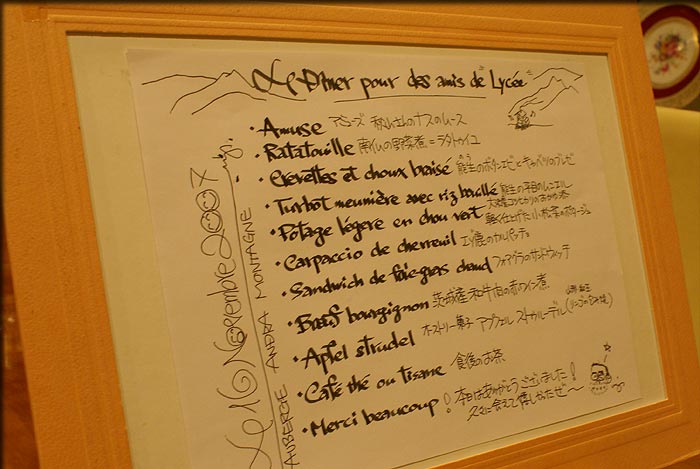 Le Dîner pour des amis de Lycée
・Amuse アミューズ 秋ナスのムース
・Ratatouille 南仏の野菜煮=ラタトゥイユ
・Crevettes et choux braisé 能生のボタンエビとキャベツのブレゼ
・Turbot meunière avec riz bouillé 能生の平目のムニエル
・Potage légère en chou vert 軽く仕上げた小松菜のポタージュ
・Carpaccio de cherreuil エゾ鹿のカルパッチョ
・Sandwich de foie-gras chaud フォアグラのサンドウィッチ
・Bœuf bourgignon 茨城産和牛肉の赤ワイン煮
・Apfel strudel オーストリー菓子 アプフェルストゥルーデル
・Café thé ou tisane 食後のお茶
・Merci beaucoup! 本日はありがとうございました!
久々に会えて嬉しかったぜ〜
Le 16 Novembre 2007
AUBERGE AMDRA MONTAGNE